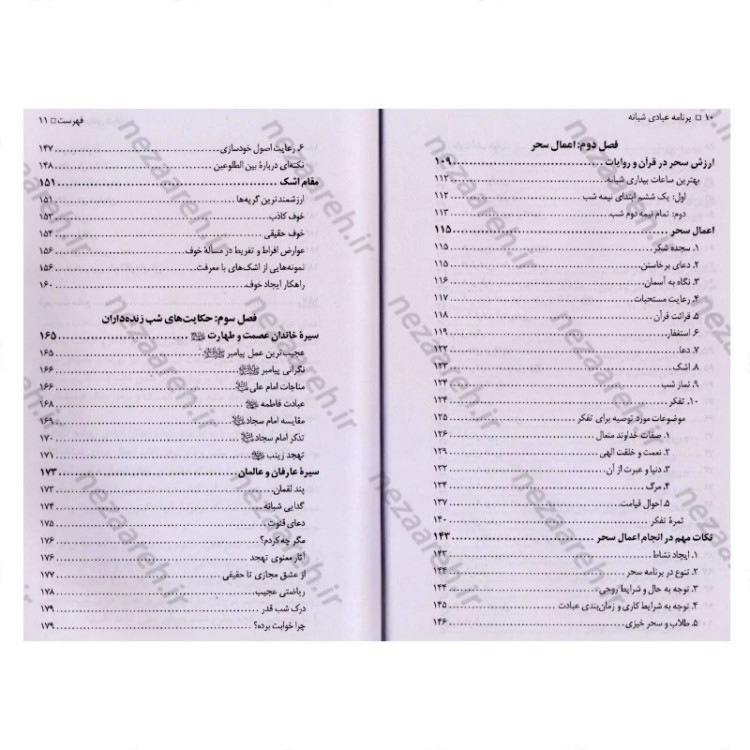 ۱۰ □ برنامه عبادی شبانه
فصل دوم: اعمال سحر
ارزش سحر در قرآن و روایات ........ ۱۰۹
بهترین ساعات بیداری شبانه ........ ۱۱۲
اول: یک ششم ابتدای نیمه شب ........ ۱۱۲
دوم: تمام نیمه دوم شب ........ ۱۱۳
اعمال سحر ........ ۱۱۵
۱. سجده شکر ........ ۱۱۵
۲. دعای برخاستن ........ ۱۱۵
۳. نگاه به آسمان ........ ۱۱۶
۴. رعایت مستحبات ........ ۱۱۷
۵. قرائت قرآن ........ ۱۱۸
۶. استغفار ........ ۱۱۹
۷. دعا ........
۸. اشک ........ ۱۲۳
۹. نماز شب ........ ۱۲۴
۱۰. تفکر ........ ۱۲۴
موضوعات مورد توصیه برای تفکر ........ ۱۲۵
۱. صفات خداوند متعال ........ ۱۲۶
۲. نعمت و خلقت الهی ........
۳. دنیا و عبرت از آن ........ ۱۳۲
۴. مرگ ........ ۱۳۴
۵. احوال قیامت ........ ۱۳۷
ثمرۀ تفکر ........ ۱۴۰
نکات مهم در انجام اعمال سحر ........ ۱۴۳
۱. ایجاد نشاط ........ ۱۴۳
۲. تنوع در برنامه سحر ........ ۱۴۴
۳. توجه به حال و شرایط روحی ........ ۱۴۴
۴. توجه به شرایط کاری و زمان‌بندی عبادت ........ ۱۴۵
۵. طلاب و سحر خیزی ........ ۱۴۶
فهرست □ ۱۱
۶. رعایت اصول خودسازی ........ ۱۴۷
نکته‌ای دربارۀ بین الطلوعین ........ ۱۴۸
مقام اشک ........ ۱۵۱
ارزشمندترین گریه‌ها ........ ۱۵۱
خوف کاذب ........ ۱۵۲
خوف حقیقی ........ ۱۵۴
عوارض افراط و تفریط در مسألۀ خوف ........ ۱۵۶
نمونه‌هایی از اشک‌های با معرفت ........ ۱۵۶
راهکار ایجاد خوف ........ ۱۶۰
فصل سوم: حکایت‌های شب زنده‌داران
سیرۀ خاندان عصمت و طهارت ........ ۱۶۵
عجیب‌ترین عمل پیامبر ﷺ ........ ۱۶۵
نگرانی پیامبر ﷺ ........ ۱۶۶
مناجات امام علی ........ ۱۶۶
عبادت فاطمه ........ ۱۶۸
مقایسه امام سجاد ........ ۱۶۹
تذکر امام سجاد ........ ۱۷۰
تهجد زینب ........ ۱۷۱
سیرۀ عارفان و عالمان ........ ۱۷۳
پند لقمان ........ ۱۷۳
گدایی شبانه ........ ۱۷۴
دعای قنوت ........ ۱۷۵
مگر چه کردم؟ ........ ۱۷۶
آثار معنوی تهجد ........ ۱۷۶
از عشق مجازی تا حقیقی ........ ۱۷۷
ریاضتی عجیب ........ ۱۷۸
درک شب قدر ........ ۱۷۹
چرا خوابت برده؟ ........ ۱۷۹
nezaareh.ir